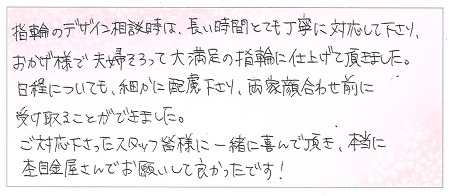 指輪のデザイン相談時は、長い時間とても丁寧に対応して下さり、
おかげ様で夫婦そろって大満足の指輪に仕上げて頂きました。
日程についても、細かに配慮下さり、両家顔合わせ前に
受け取ることができました。
ご対応下さったスタッフ皆様に一緒に喜んで頂き、本当に
杢目金屋さんでお願いして良かったです！